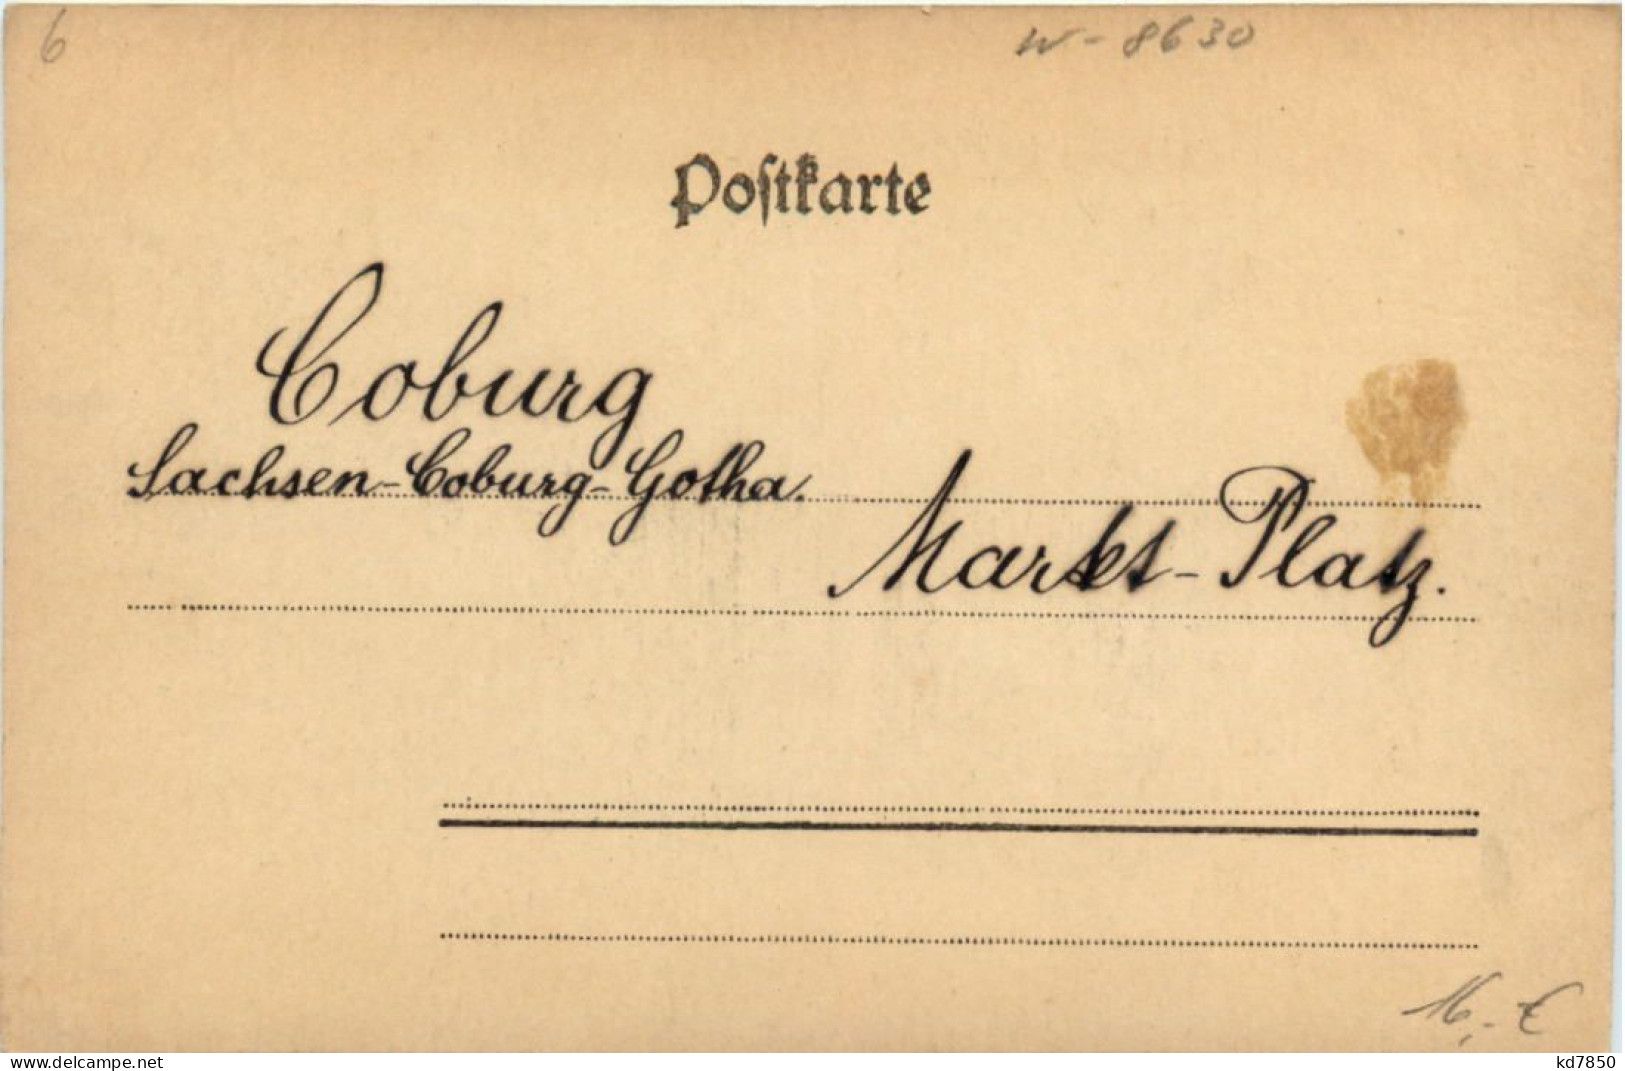 6
W - 8630
Poſtkarte
Coburg
Sachsen-Coburg-Gotha.
Markt-Platz.
16,- €
delcampe.net
kd7850